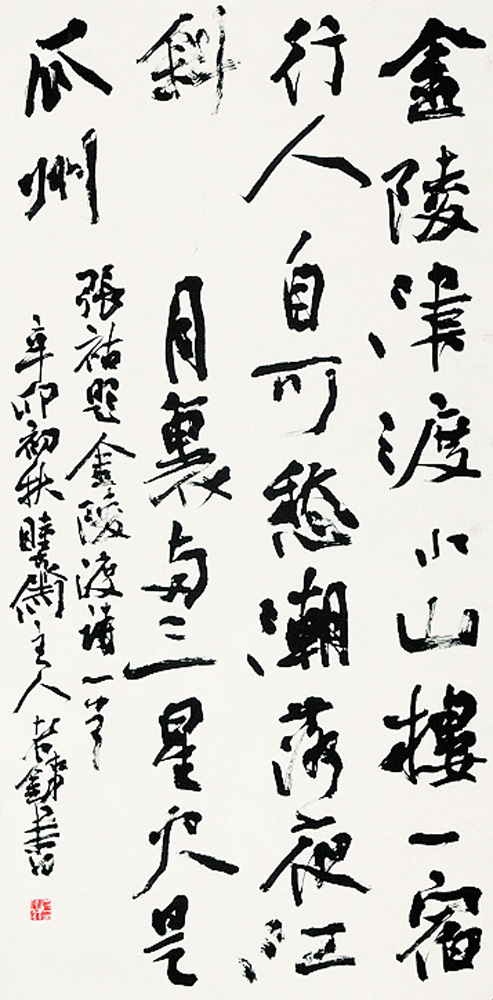 金陵津渡小山樓一宿
行人自可愁潮落夜江
斜月裏兩三星火是
瓜州
張祜題金陵渡詩一首
辛卯初秋主人書